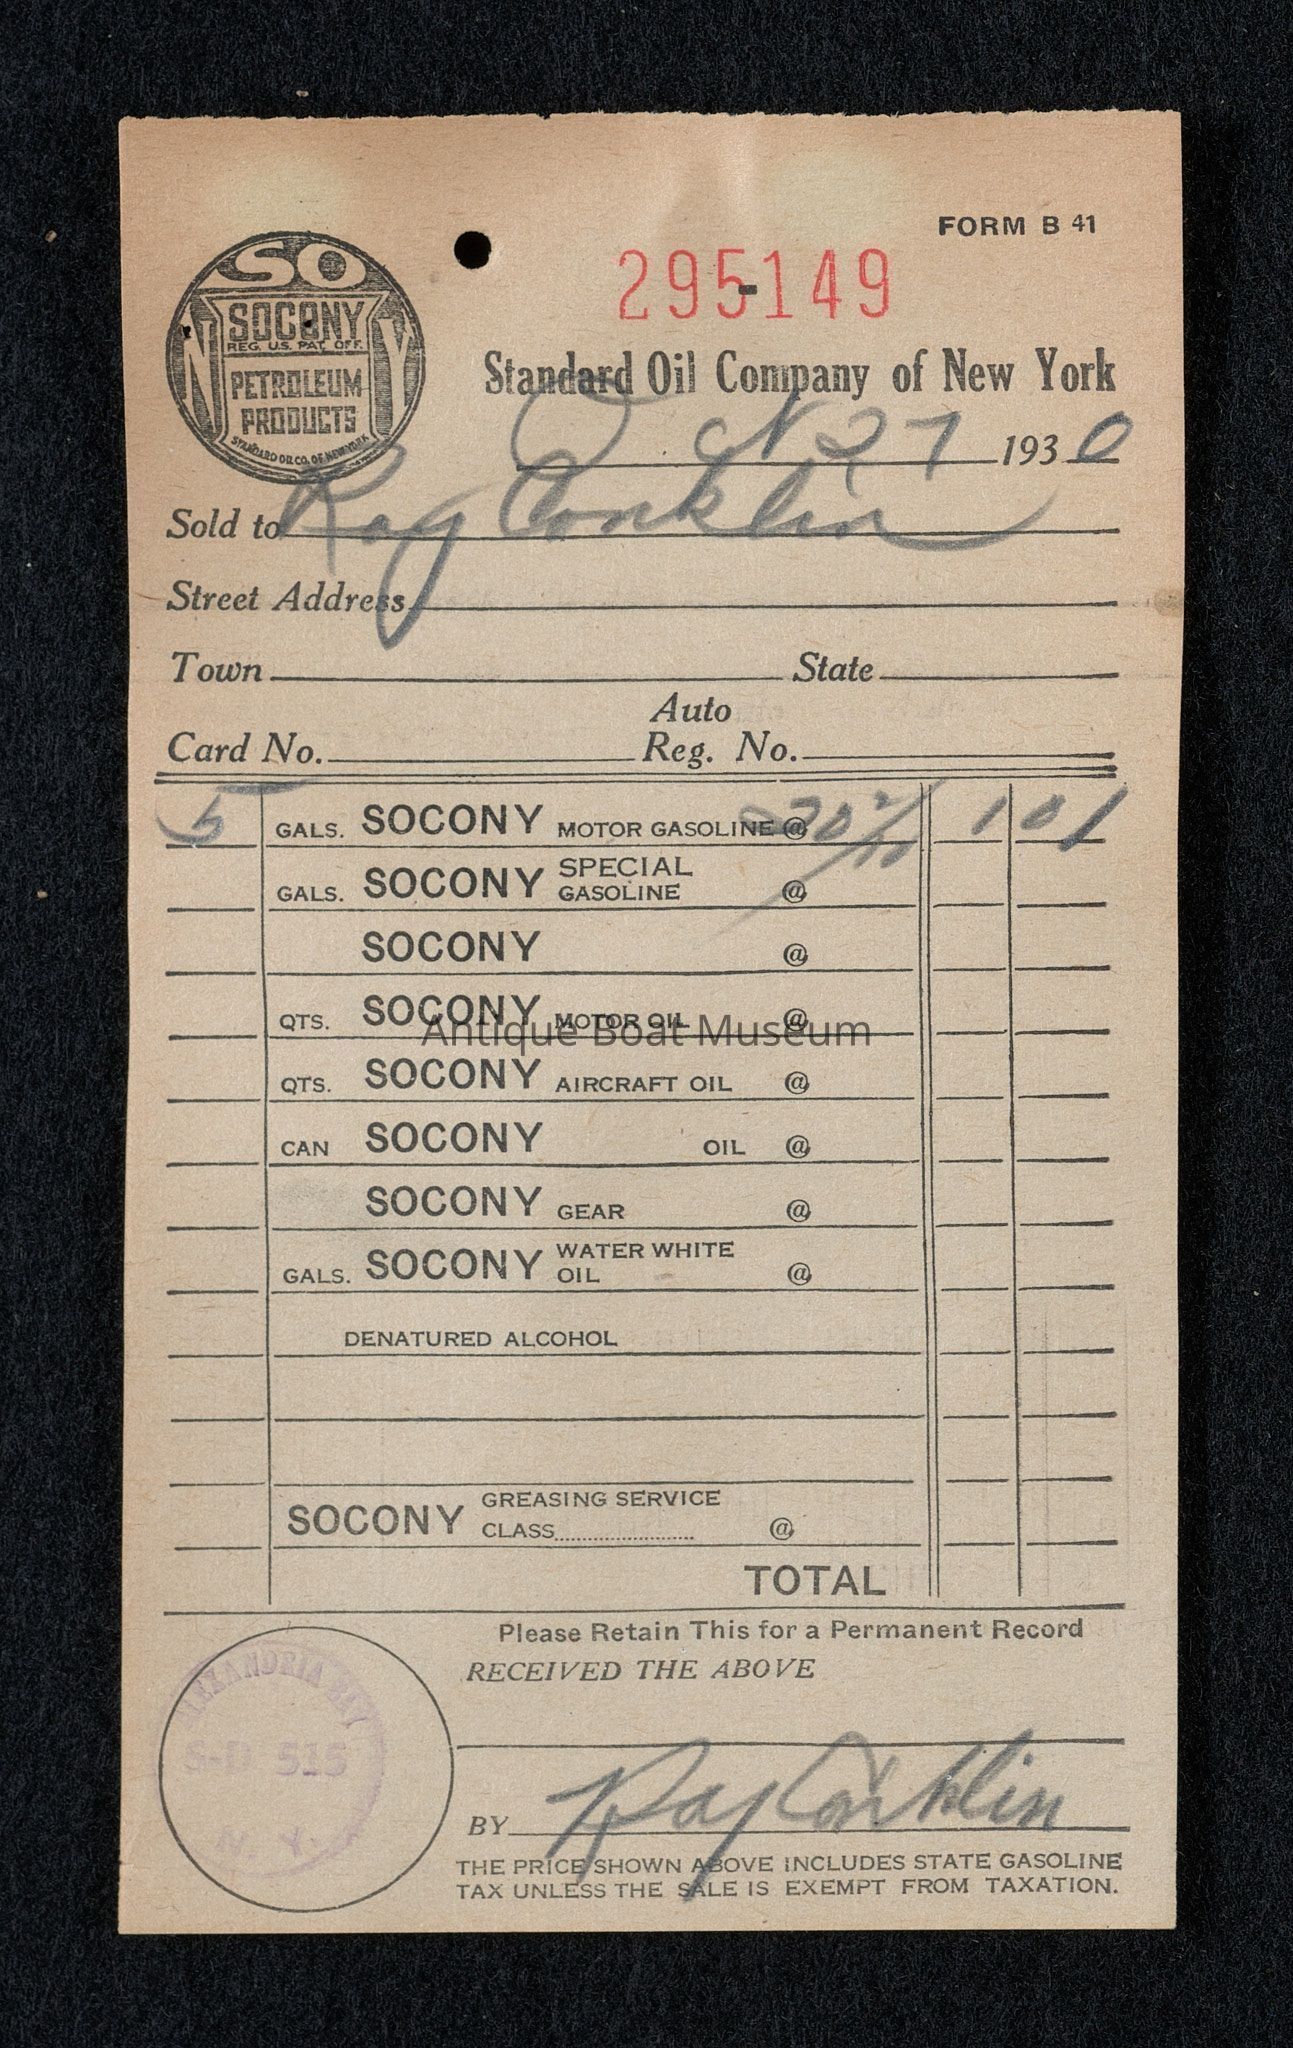 FORM B 41
SO
N Y
SOCONY
REG. U.S. PAT. OFF.
PETROLEUM
PRODUCTS
STANDARD OIL CO. OF NEW YORK
295149
Standard Oil Company of New York
Oct 27 1930
Sold to Ray Conklin
Street Address
Town State
Auto
Card No. Reg. No.
5 GALS. SOCONY MOTOR GASOLINE @ 20 2/10 1 01
GALS. SOCONY SPECIAL GASOLINE @
SOCONY @
QTS. SOCONY MOTOR OIL @
Antique Boat Museum
QTS. SOCONY AIRCRAFT OIL @
CAN SOCONY OIL @
SOCONY GEAR @
GALS. SOCONY WATER WHITE OIL @
DENATURED ALCOHOL
SOCONY GREASING SERVICE
CLASS @
TOTAL
Please Retain This for a Permanent Record
RECEIVED THE ABOVE
ALEXANDRIA BAY
S-D 515
N. Y.
BY Ray Conklin
THE PRICE SHOWN ABOVE INCLUDES STATE GASOLINE
TAX UNLESS THE SALE IS EXEMPT FROM TAXATION.